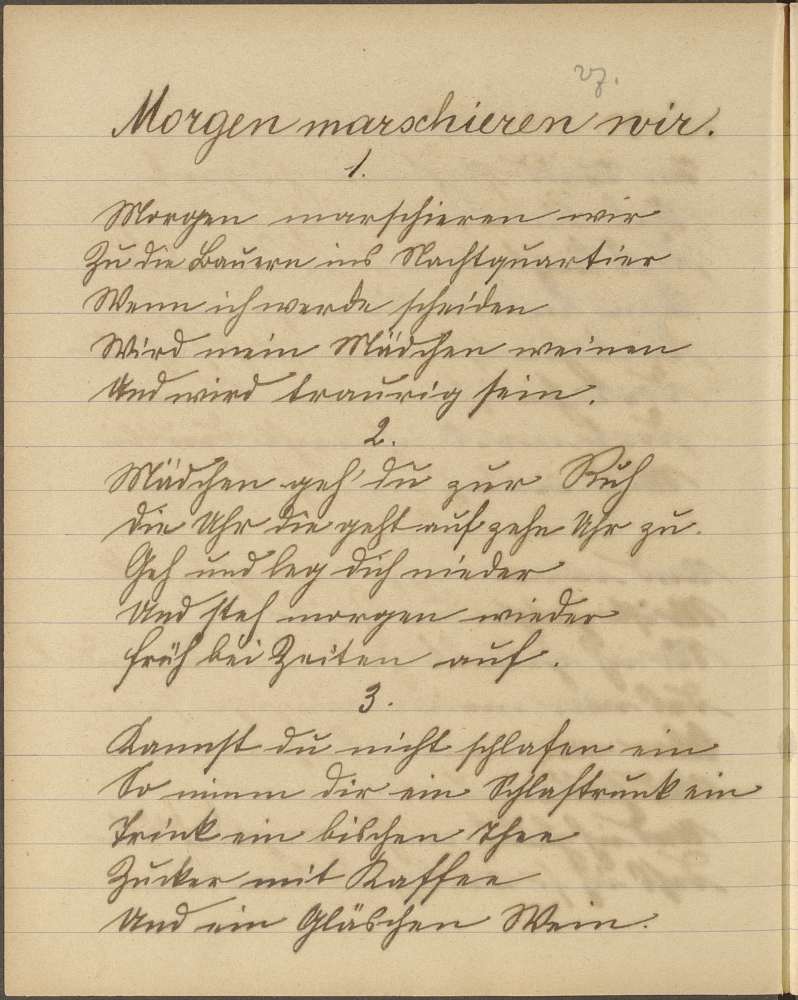 27.
Morgen marschieren wir.
1.
Morgen marschieren wir
Zu die Bauern ins Nachtquartier
Wenn ich werde scheiden
Wird mein Mädchen weinen
Und wird traurig sein.
2.
Mädchen geh' du zur Ruh
Die Uhr die geht auf zehn Uhr zu.
Geh und leg dich nieder
Und steh morgen wieder
früh bei Zeiten auf.
3.
Kannst du nicht schlafen ein
So nimm dir ein Schlaftrunk ein
Trink ein bischen Thee
Zucker mit Kaffee
Und ein Gläschen Wein.